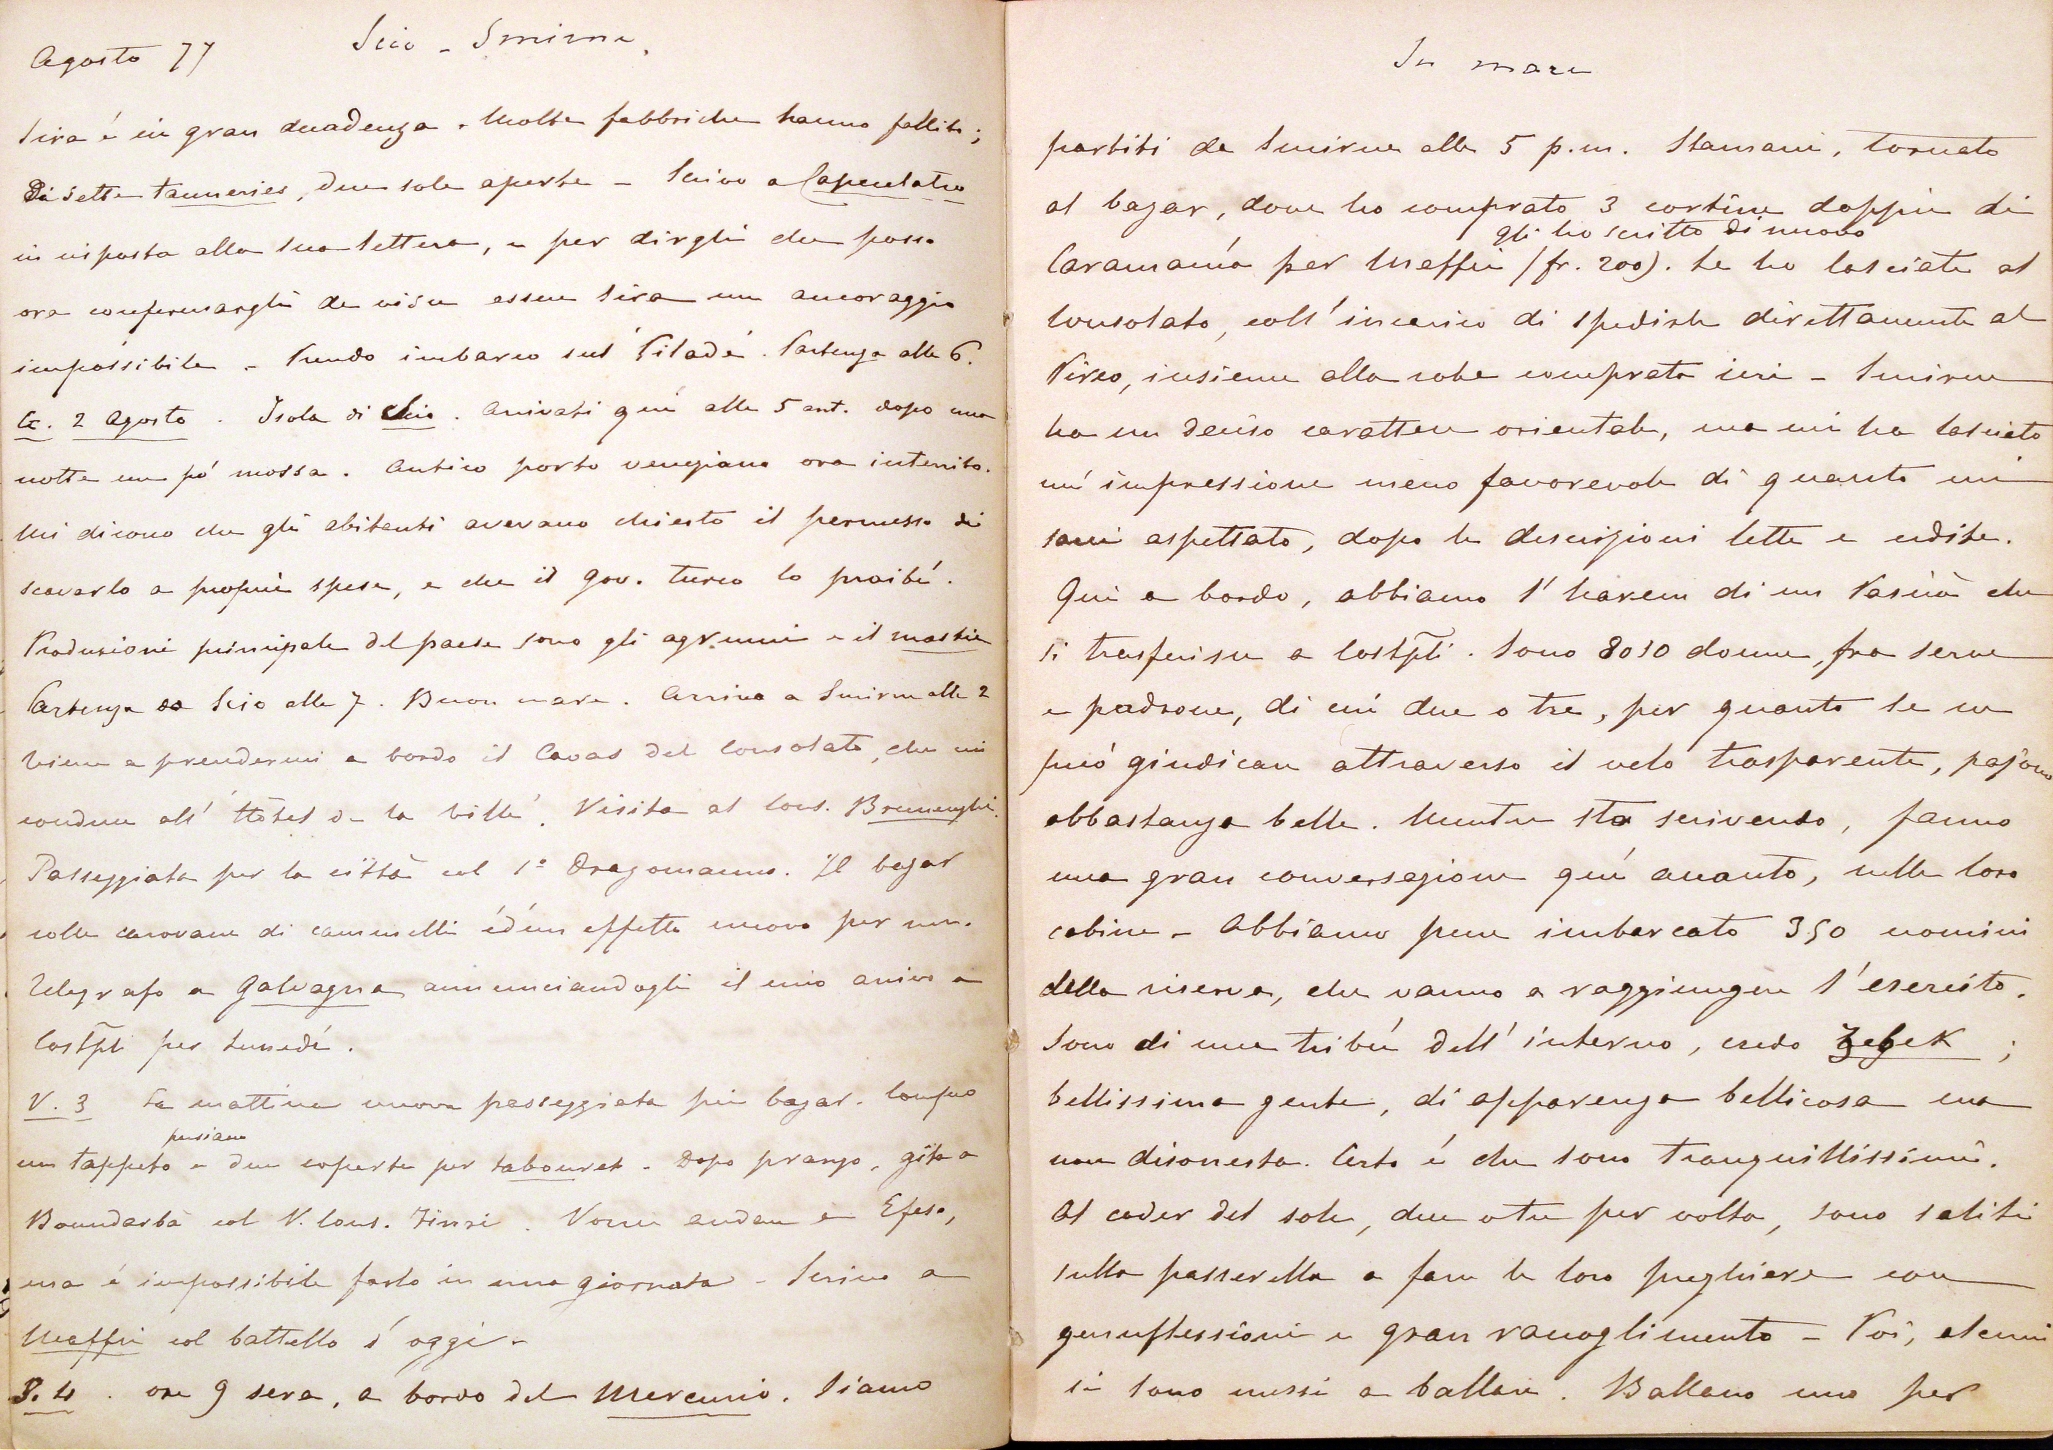 Agosto 77 Scio - Smirne.
Sira é in gran decadenza. Molte fabbriche hanno fallito;
Di sette tanneries, due sole aperte - Scrivo a Capecelatro
in risposta alla sua lettera, e per dirgli che posso
ora confermargli de visu essere Sira un ancoraggio
impossibile - Prendo imbarco sul 'Pilade'. Partenza alle 6.
G. 2 Agosto. Isola di Scio. Arrivati quí alle 5 ant. dopo una
notte un pó mossa. Antico porto veneziano ora interrito.
Mi dicono che gli abitanti avevano chiesto il permesso di
scavarlo a proprie spese, e che il gov. turco lo proibí.
Produzioni principale del paese sono gli agrumi e il mastic
Partenza da Scio alle 7. Buon mare. Arrivo a Smirne alle 2
Viene a prendermi a bordo il Cavas del Consolato, che mi
conduce all' 'Hôtel de la Ville'. Visita al Cons. Brunenghi.
Passeggiata per la città col 1º Dragomanno. Il bazar
colle carovane di cammelli é d'un effetto nuovo per me.
Telegrafo a Galvagna annunciandogli il mio arrivo a
Costpli per lunedí.
V. 3 La mattina nuova passeggiata pei bazar. Compro
un tappeto persiano e due coperte per tabouret - Dopo pranzo, gita a
Bournabà col V. Cons. Vorrei andare a Efeso,
ma é impossibile farlo in una giornata - Scrivo a
Maffei col battello d'oggi -
S. 4. ore 9 sera, a bordo del Mercurio. Siamo
In mare
partiti da Smirne alle 5 p.m. Stamani, tornato
al bazar, dove ho comprato 3 cortine doppie di
gli ho scritto di nuovo
Caramanía per Maffei (fr. 200). Le ho lasciate al
Consolato, coll'incarico di spedirle direttamente al
Pireo, insieme alla robe comprata ieri - Smirne
ha un deciso carattere orientale, ma mi ha lasciato
un'impressione meno favorevole di quanto mi
sarei aspettato, dopo le descrizioni lette e udite.
Qui a bordo, abbiamo l'harem di un Pasciá che
si trasferisce a Costpli. Sono 8 o 10 donne, fra serve
e padrone, di cui due o tre, per quanto se ne
può giudicare attraverso il velo trasparente, pajono
abbastanza belle. Mentre sto scrivendo, fanno
una gran conversazione quí accanto, nelle loro
cabine - Abbiamo pure imbarcato 350 uomini
della riserva, che vanno a raggiungere l'esercito.
Sono di una tribú dell'interno, credo Zebek;
bellissima gente, di apparenza bellicosa ma
non disonesta. Certo é che sono tranquillissimi.
Al cader del sole, due o tre per volta, sono saliti
sulla passerella a fare le loro preghiere con
genuflessioni e gran raccoglimento - Poi, alcuni
si sono messi a ballare. Ballano uno per